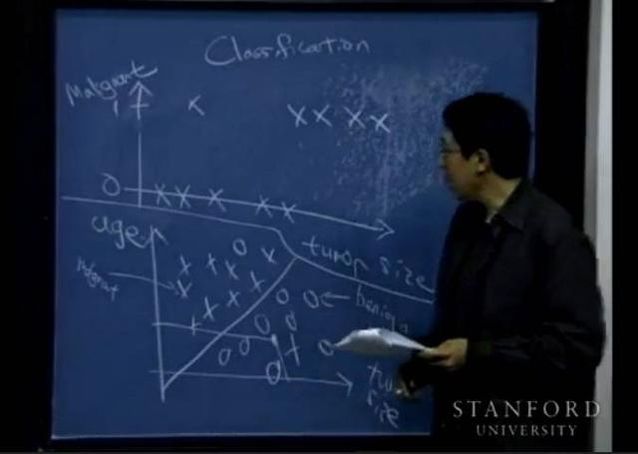 Classification
Malignant
1
0
tumor size
age
malignant
benign
tumor
size
STANFORD
UNIVERSITY